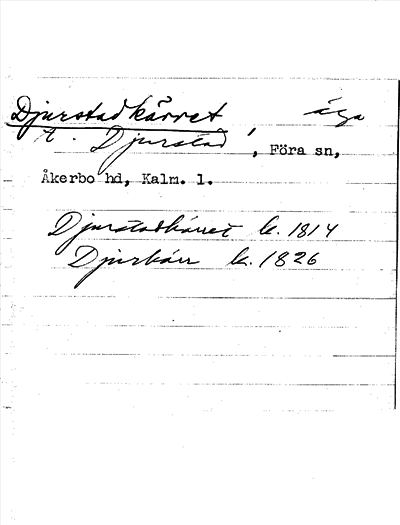 Djurstadkärret äga
t. Djurstad, Föra sn,
Åkerbo hd, Kalm. l.
Djurstadkärret k. 1814
Djurkärr k. 1826